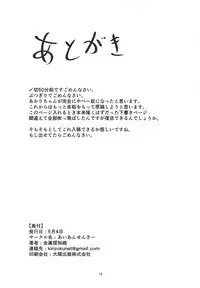 あとがき
〆切50分前ですごめんなさい。
ぶつぎりでごめんなさい。
あかりちゃんが完全にやべー奴になったと思います。
これからはもっと余裕をもって原稿しようと思います。
このあとがきページのあと本来描くはずだった下書きページ
間違えて全部吹っ飛ばしたんですが復活できるんでしょうか。
そもそもとしてこれ入稿できるか怪しいんですが、
もし出せてたらごめんなさい。
【奥付】
発行日：5月4日
サークル名：あいあんせんさー
著者：金属探知機
連絡先：kinzokunet@gmail.com
印刷会社：大陽出版株式会社